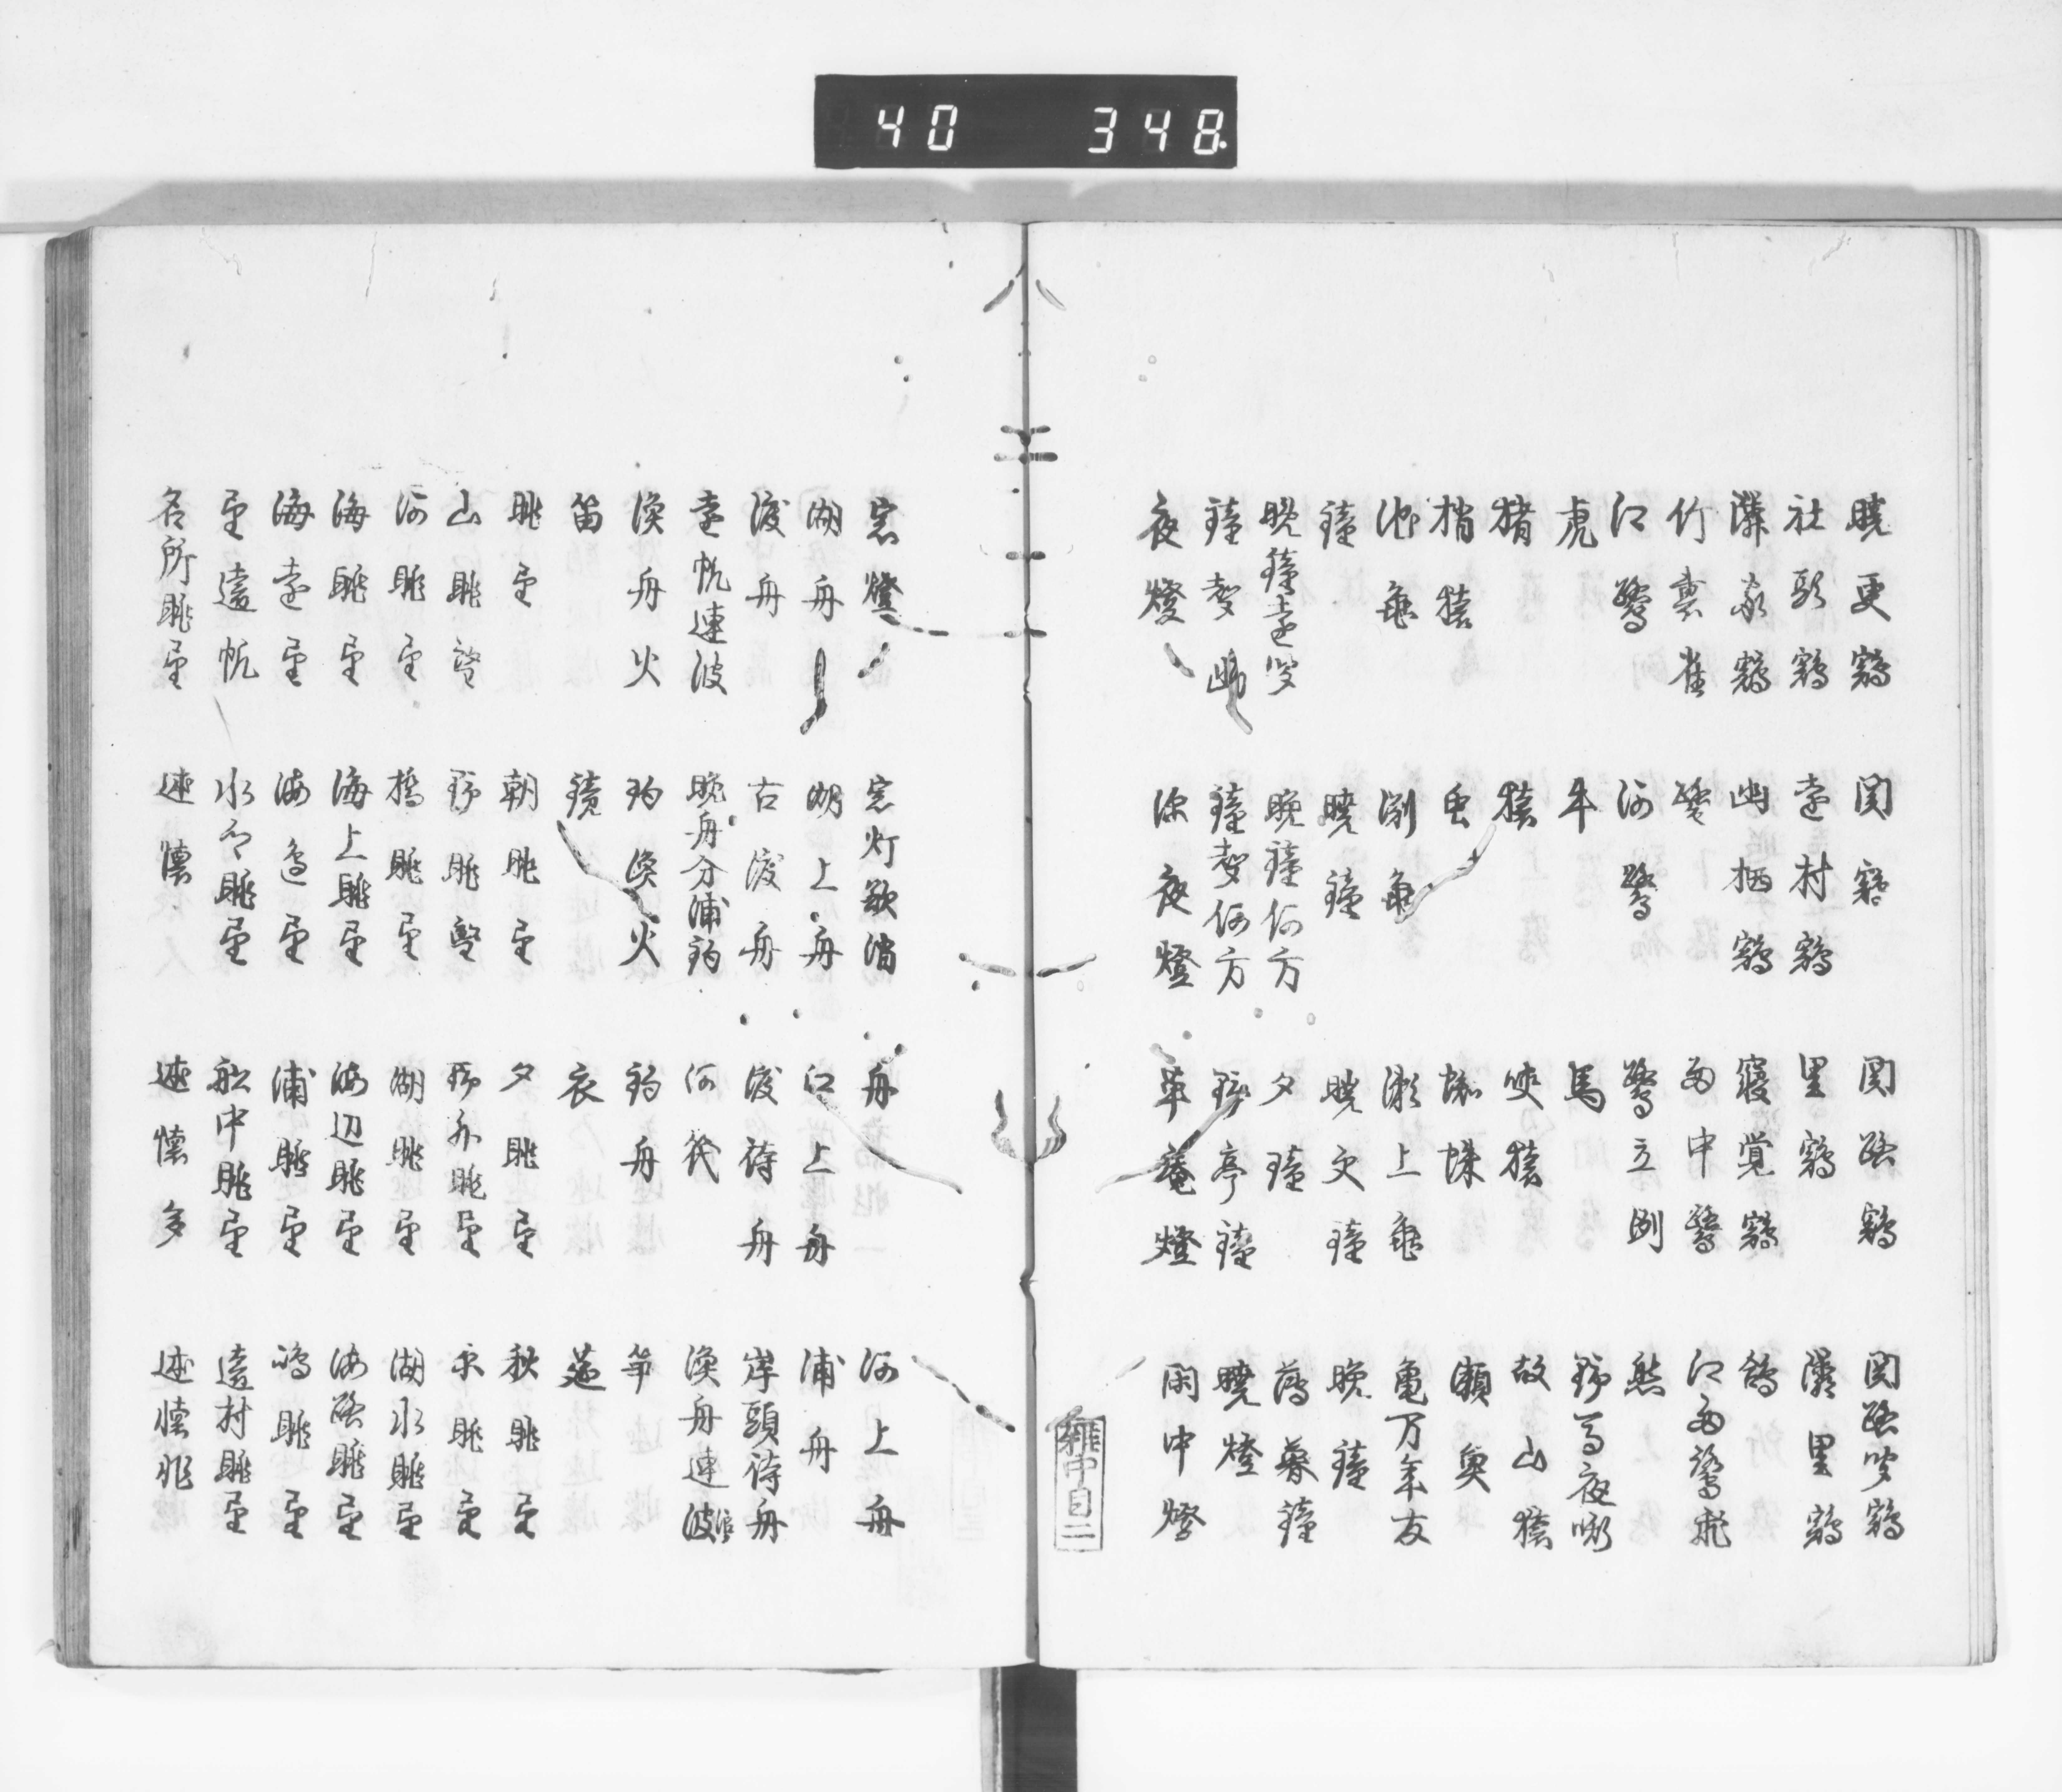 40 348
暁更鶏 関鶏 関路鶏 関路聞鶏
社頭鶏 遠村鶏 里鶏 隣里鶏
隣家鶏 幽栖鶏 寝覚鶏
竹裏雀 鷺 雨中鷺 江雨鷺飛
江鷺 河鷺 鷺立洲 熊
虎 牛 馬 野馬夜嘶
猪 猿 峡猿 故山猿
梢猿 虫 蜘蛛 瀬魚
池亀 淵亀 瀬上亀 亀万年友
鐘 暁鐘 暁天鐘 晩鐘
晩鐘遠聞 晩鐘何方 夕鐘 薄暮鐘
鐘声幽 鐘声何方 野亭鐘 暁燈
夜燈 深夜燈 草庵燈 閑中燈
雑中目二
窓燈 窓灯欲消 舟 河上舟
湖舟 湖上舟 江上舟 浦舟
渡舟 古渡舟 渡待舟 岸頭待舟
遠帆連波 晩舟分浦釣 河筏 漁舟連波
漁舟火 釣漁火 釣舟 筝
笛 鏡 衣 莚
眺望 朝眺望 夕眺望 秋眺望
山眺望 野眺望 野外眺望 原眺望
河眺望 橋眺望 湖眺望 湖水眺望
海眺望 海上眺望 海辺眺望 海路眺望
海遠望 海邊望 浦眺望 嶋眺望
望遠帆 水郷眺望 船中眺望 遠村眺望
名所眺望 述懐 述懐多 述懐非